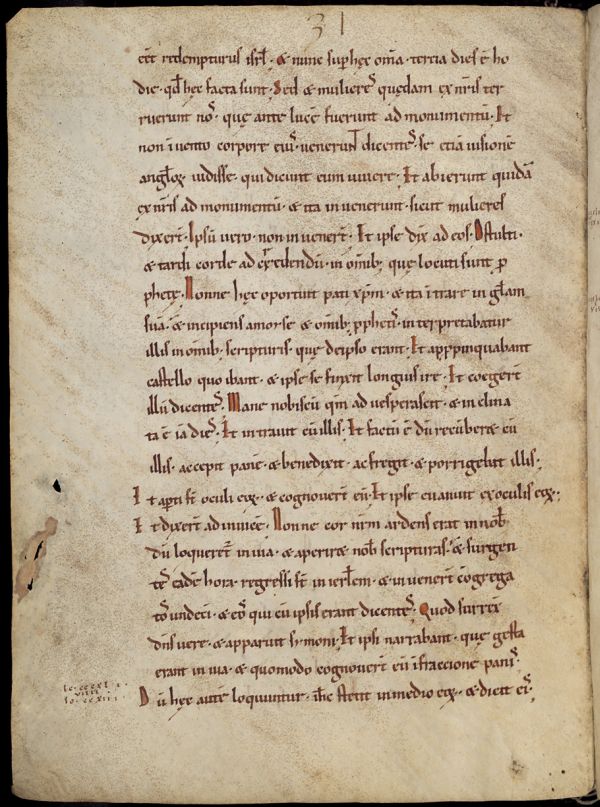 31
eēt redempturus isrl̄. & nunc sup̄ hęc om̄ia. tercia dies ē ho
die. qd̄ hęc facta sunt. Sed & mulieres quędam ex nr̄is ter
ruerunt nos. quę ante lucē fuerunt ad monumentū. Et
non inuento corpore eius. uenerunt dicentes. se etiā uisionē
angl̄oꝝ uidisse. qui dicunt eum uiuere. Et abierunt quidā
ex nr̄is ad monumentū. & ita inuenerunt. sicut mulieres
dixer̄t. Ipsū uero. non inuener̄t. Et ipse dix̄ ad eos. O stulti.
& tardi corde ad credendū. in omib; quę locuti sunt ꝓ
phetę. Nonne hęc oportuit pati xp̄m. & ita ītrare in gl̄am
suā. & incipiens a moyse & omib; ꝓphetis. interpretabatur
illis in omib; scripturis. quę de ipso erant. Et aꝓpinquabant
castello quo ibant. & ipse se finxit longius ire. Et coeger̄t
illū dicentes. Mane nobiscū qm̄ aduesperascit. & inclina
ta ē iā dies. Et intrauit cū illis. Et factū ē dū recūber& cū
illis. accepit panē. & benedixit. ac fregit. & porrigebat illis.
Et apti st̄ oculi eoꝝ. & cognouer̄t eū. Et ipse euanuit ex oculis eoꝝ.
Et dixer̄t adinuicē. Nonne cor nr̄m ardens erat in nob̄
dū loqueret̄ in uia. & aperir& nob̄ scripturas. & surgen
tes eadē hora. regressi st̄ in ierl̄em. & inuener̄t cōgrega
tos undeci. & eos qui cū ipsis erant dicentes. Quod surrex̄
dn̄s uere. & apparuit symoni. Et ipsi narrabant. quę gesta
erant in uia. & quomodo cognouer̄t eū ī fraccione panis.
Dū hęc autē loquuntur. ihc̄ stetit in medio eoꝝ. & dicit eis.